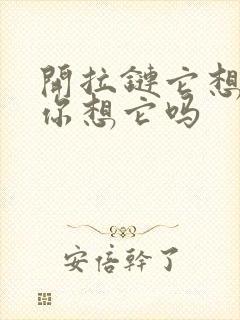 開拉鏈它想
你想它吗
安倍幹了